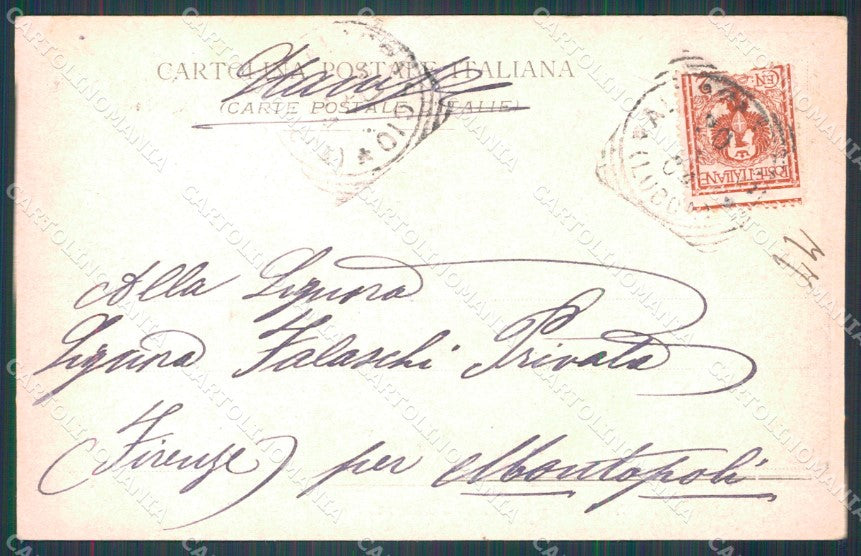 CARTOLINA POSTALE ITALIANA
(CARTE POSTALE ITALIE)
POSTE ITALIANE
CEN
(LUCCA)
Alla Signora
Signora Falaschi Privata
(Firenze) per Montopoli
CARTOLINOMANIA